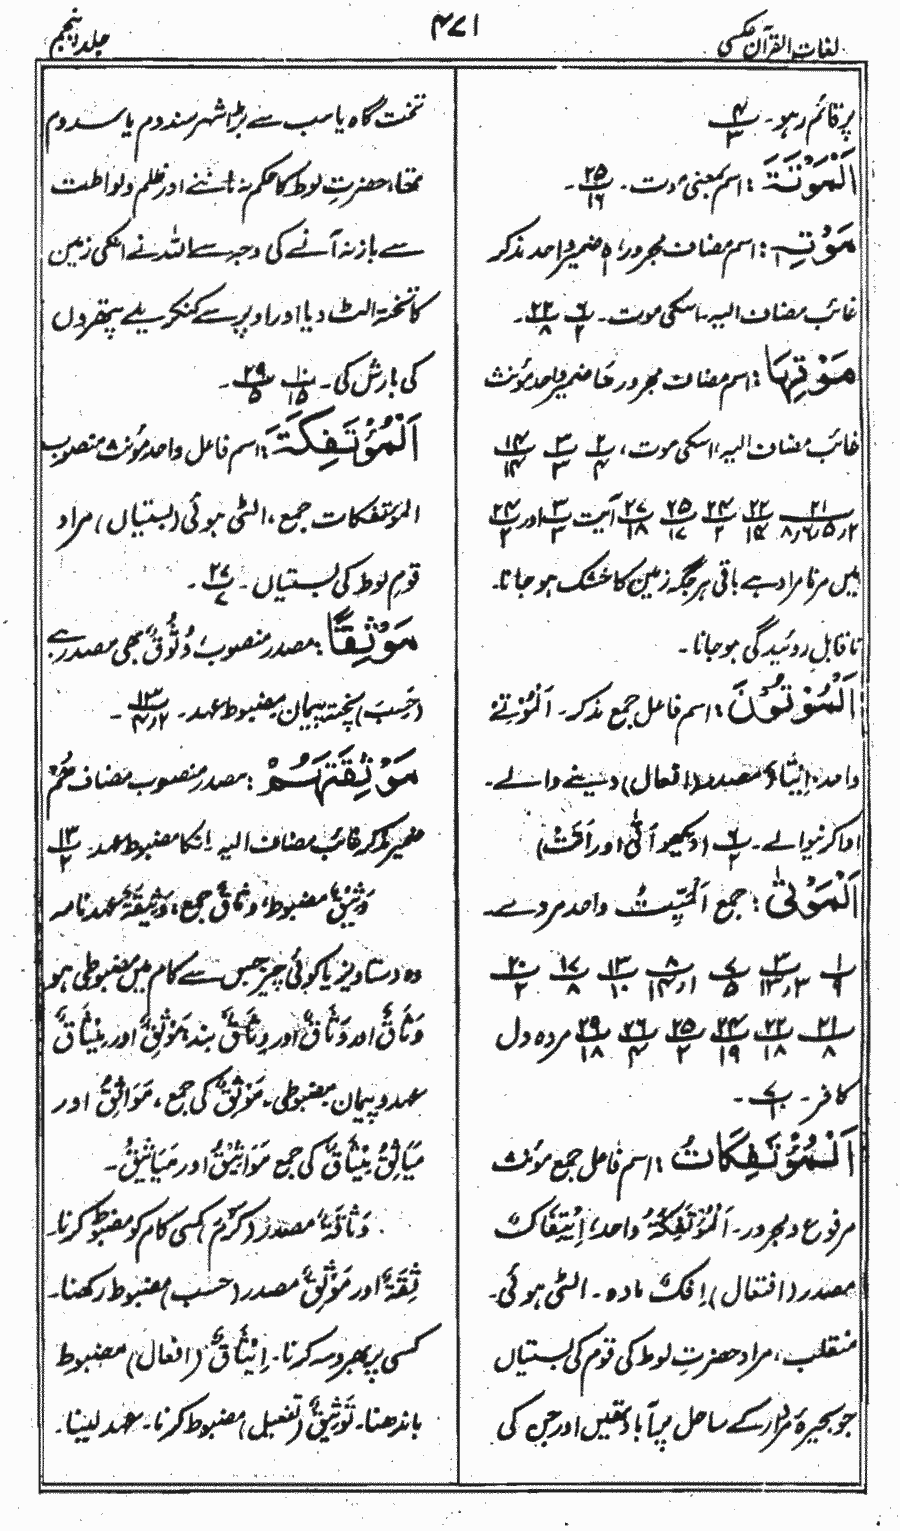 لغات القرآن عکسی
۴۷۱
جلد پنجم
پر قائم رہو۔ ۴/۳
اَلْمَوْتَةَ : اسم بمعنی موت۔ ۲۵/۱۶۔
مَوْتِہٖ : اسم مضاف مجرور، ہ ضمیر واحد مذکر
غائب مضاف الیہ۔ اسکی موت۔ ۶/۲ ۲۲/۸۔
مَوْتِهَا : اسم مضاف مجرور ھَا ضمیر واحد مؤنث
غائب مضاف الیہ، اسکی موت، ۲/۴ ۳/۳ ۱۴/۱۴
۲۱/۲٫۵٫۶٫۸ ۲۲/۱۵ ۲۴/۲ ۲۵/۱۷ ۲۷/۱۸ آیت ۳/۲ اور ۲۴/۲
میں مرنا مراد ہے باقی ہر جگہ زمین کا خشک ہو جانا۔
ناقابلِ روئیدگی ہوجانا۔
اَلْمُؤْتُوْنَ : اسم فاعل جمع مذکر۔ اَلْمُؤْتِیْ
واحد، اِیْتَاءٌ مصدر (افعال) دینے والے۔
ادا کرنیوالے۔ ۶/۲ (دیکھو آتٰی اور اَخَتْ)
اَلْمَوْتٰی : جمع اَلْمَیِّتُ واحد مردے۔
۱/۹ ۳/۳٫۱۳ ۷/۵ ۸/۱٫۱۴ ۱۳/۱۰ ۱۷/۸ ۲۰/۲
۲۱/۸ ۲۲/۱۸ ۲۴/۱۹ ۲۵/۲ ۲۶/۴ ۲۹/۱۸ مردہ دل
کافر۔ ۷/۱۰۔
اَلْمُؤْتَفِکَاتُ : اسم فاعل جمع مؤنث
مرفوع و مجرور۔ اَلْمُؤْتَفِکَةُ واحد، اِئْتِفَاکٌ
مصدر (افتعال) اِفْکٌ مادہ۔ الٹی ہوئی۔
منقلب، مراد حضرت لوط کی قوم کی بستیاں
جو بحیرۂ مردار کے ساحل پر آباد تھیں اور جن کی
تخت گاہ یا سب سے بڑا شہر سندوم یا سدوم
تھا، حضرتِ لوط کا حکم نہ ماننے اور ظلم و لواطت
سے باز نہ آنے کی وجہ سے اللہ نے انکی زمین
کا تختہ الٹ دیا اور اوپر سے کنکریلے پتھروں
کی بارش کی۔ ۱۰/۱۵ ۲۹/۵۔
اَلْمُؤْتَفِکَةَ : اسم فاعل واحد مؤنث منصوب
المؤتفکات جمع، الٹی ہوئی (بستیاں) مراد
قومِ لوط کی بستیاں۔ ۲۷/۷۔
مَوْثِقًا : مصدر منصوب، وُثُوْقٌ بھی مصدر ہے
(حَسِبَ) پختہ پیمان مضبوط عہد۔ ۱۳/۲٫۴۔
مَوْثِقَهُمْ : مصدر منصوب مضاف ھُمْ
ضمیر مذکر غائب مضاف الیہ۔ انکا مضبوط عہد۔ ۱۳/۲
وَثِیْقٌ مضبوط، وِثَاقٌ جمع، وَثِیْقَةٌ عہدنامہ
وہ دستاویز یا کوئی چیز جس سے کام میں مضبوطی ہو
وَثَاقٌ اور وَثَاقٌ اور وِثَاقٌ بند مَوْثِقٌ اور مِیْثَاقٌ
عہد و پیمان مضبوطی۔ مَوْثِقٌ کی جمع، مَوَاثِقُ اور
مَیَاثِقُ مِیْثَاقٌ کی جمع مَوَاثِیْقُ اور مَیَاثِیْقُ۔
وَثَاقَةٌ مصدر (کَرُمَ) کسی کام کو مضبوط کرنا۔
ثِقَةٌ اور مَوْثِقٌ مصدر (حسب) مضبوط رکھنا۔
کسی پر بھروسہ کرنا۔ اِیْثَاقٌ (افعال) مضبوط
باندھنا۔ تَوْثِیْقٌ (تفعیل) مضبوط کرنا۔ عہد لینا۔